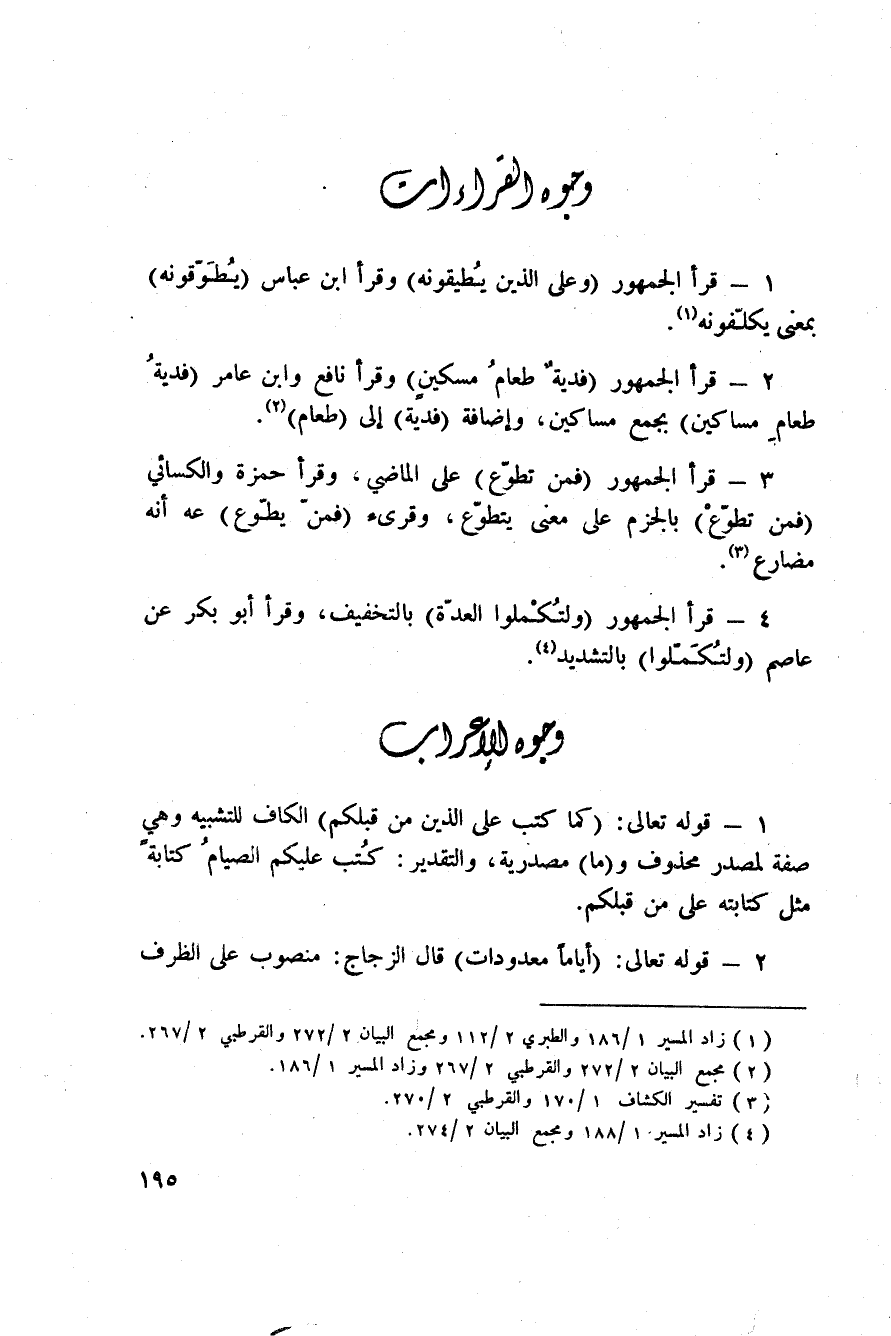 وجوه القراءات
١ — قرأ الجمهور (وعلى الذين يُطيقونه) وقرأ ابن عباس (يُطَوّقونه)
بمعنى يكلّفونه(١).
٢ — قرأ الجمهور (فديةٌ طعامُ مسكينٍ) وقرأ نافع وابن عامر (فديةُ
طعامِ مساكين) بجمع مساكين، وإضافة (فدية) إلى (طعام)(٢).
٣ — قرأ الجمهور (فمن تطوّع) على الماضي، وقرأ حمزة والكسائي
(فمن تطوّعْ) بالجزم على معنى يتطوّع، وقرىء (فمنّ يطّوع) عه أنه
مضارع(٣).
٤ — قرأ الجمهور (ولتُكْملوا العدّة) بالتخفيف، وقرأ أبو بكر عن
عاصم (ولتُكَمّلوا) بالتشديد(٤).
وجوه الإعراب
١ — قوله تعالى: (كما كتب على الذين من قبلكم) الكاف للتشبيه وهي
صفة لمصدر محذوف و(ما) مصدرية، والتقدير: كُتب عليكم الصيامُ كتابةً
مثل كتابته على من قبلكم.
٢ — قوله تعالى: (أياماً معدودات) قال الزجاج: منصوب على الظرف
(١) زاد المسير ١/١٨٦ والطبري ٢/١١٢ ومجمع البيان ٢/٢٧٢ والقرطبي ٢/٢٦٧.
(٢) مجمع البيان ٢/٢٧٢ والقرطبي ٢/٢٦٧ وزاد المسير ١/١٨٦.
(٣) تفسير الكشاف ١/١٧٠ والقرطبي ٢/٢٧٠.
(٤) زاد المسير ١/١٨٨ ومجمع البيان ٢/٢٧٤.
١٩٥